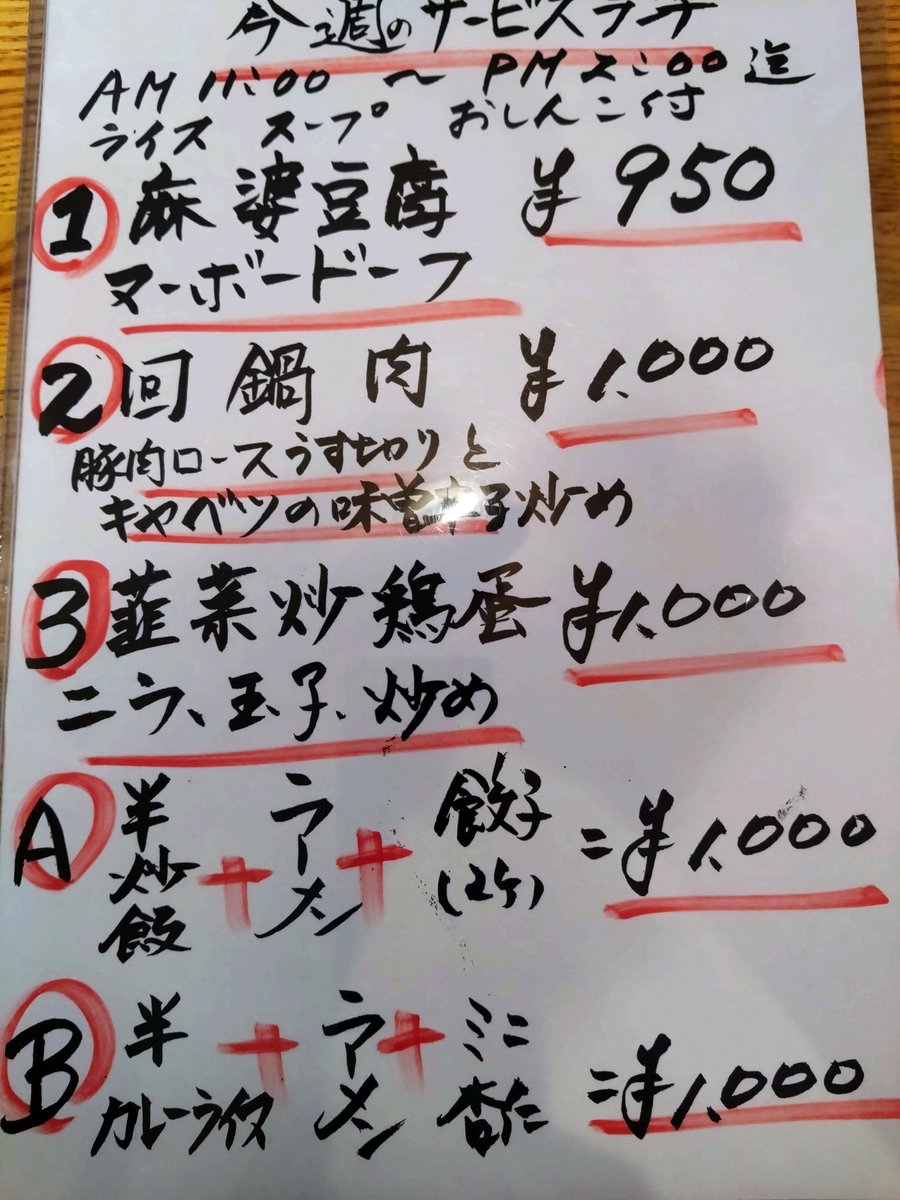 今週のサービスランチ
AM 11:00 〜 PM 2:00 迄
ライス スープ おしんこ付
1 麻婆豆腐 ¥950
マーボードーフ
2 回鍋肉 ¥1,000
豚肉ロースうす切りと
キャベツの味曽辛子炒め
3 韮菜炒鶏蛋 ¥1,000
ニラ、玉子、炒め
A 半炒飯 + ラーメン + 餃子(2ケ) =¥1,000
B 半カレーライス + ラーメン + ミニ杏仁 =¥1,000